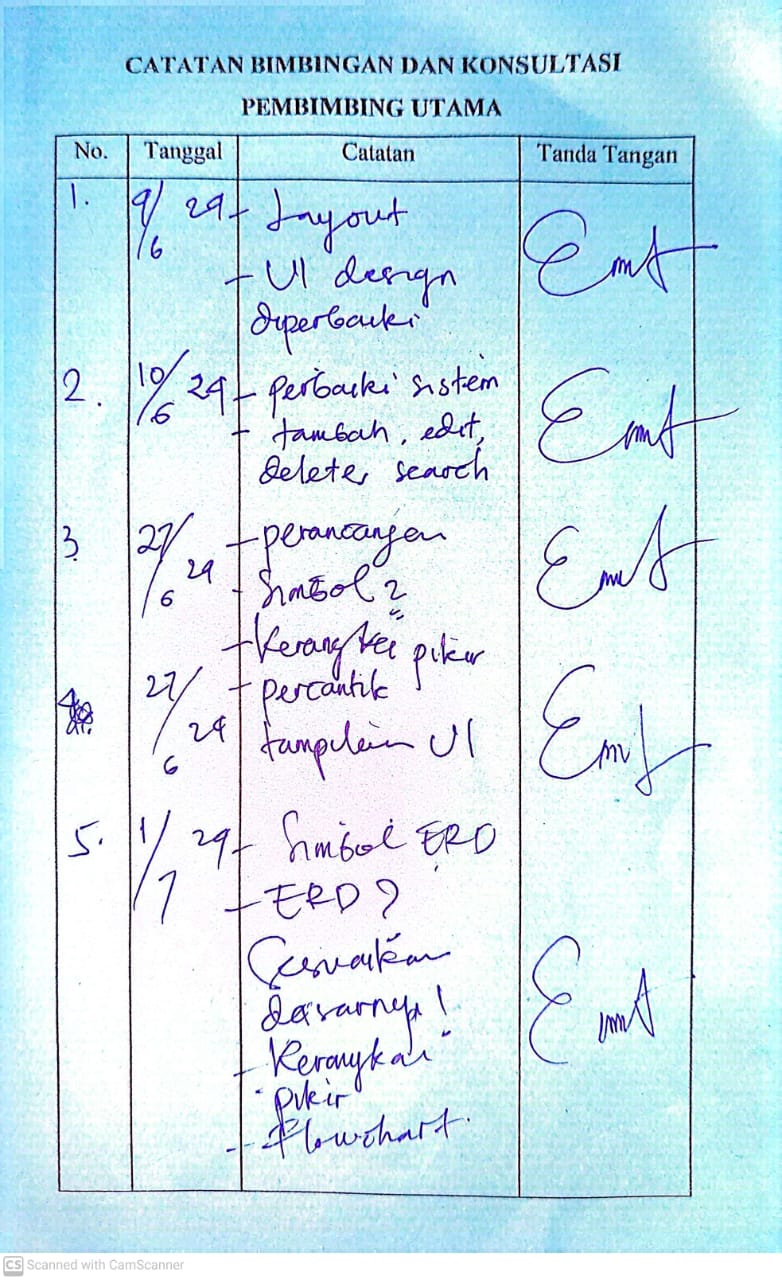 CATATAN BIMBINGAN DAN KONSULTASI
PEMBIMBING UTAMA
No. Tanggal Catatan Tanda Tangan
1. 9/6 24 - Layout
- UI design
diperbaiki
2. 10/6 24 - perbaiki sistem
- tambah, edit,
delete, search
3. 27/6 24 - perancangan
- Simbol2
- Kerangka pikir
27/6 24 - percantik
tampilan UI
5. 1/7 24 - Simbol ERD
- ERD ?
Sesuaikan
dasarnya!
- Kerangka
pikir
- Flowchart.
CS Scanned with CamScanner